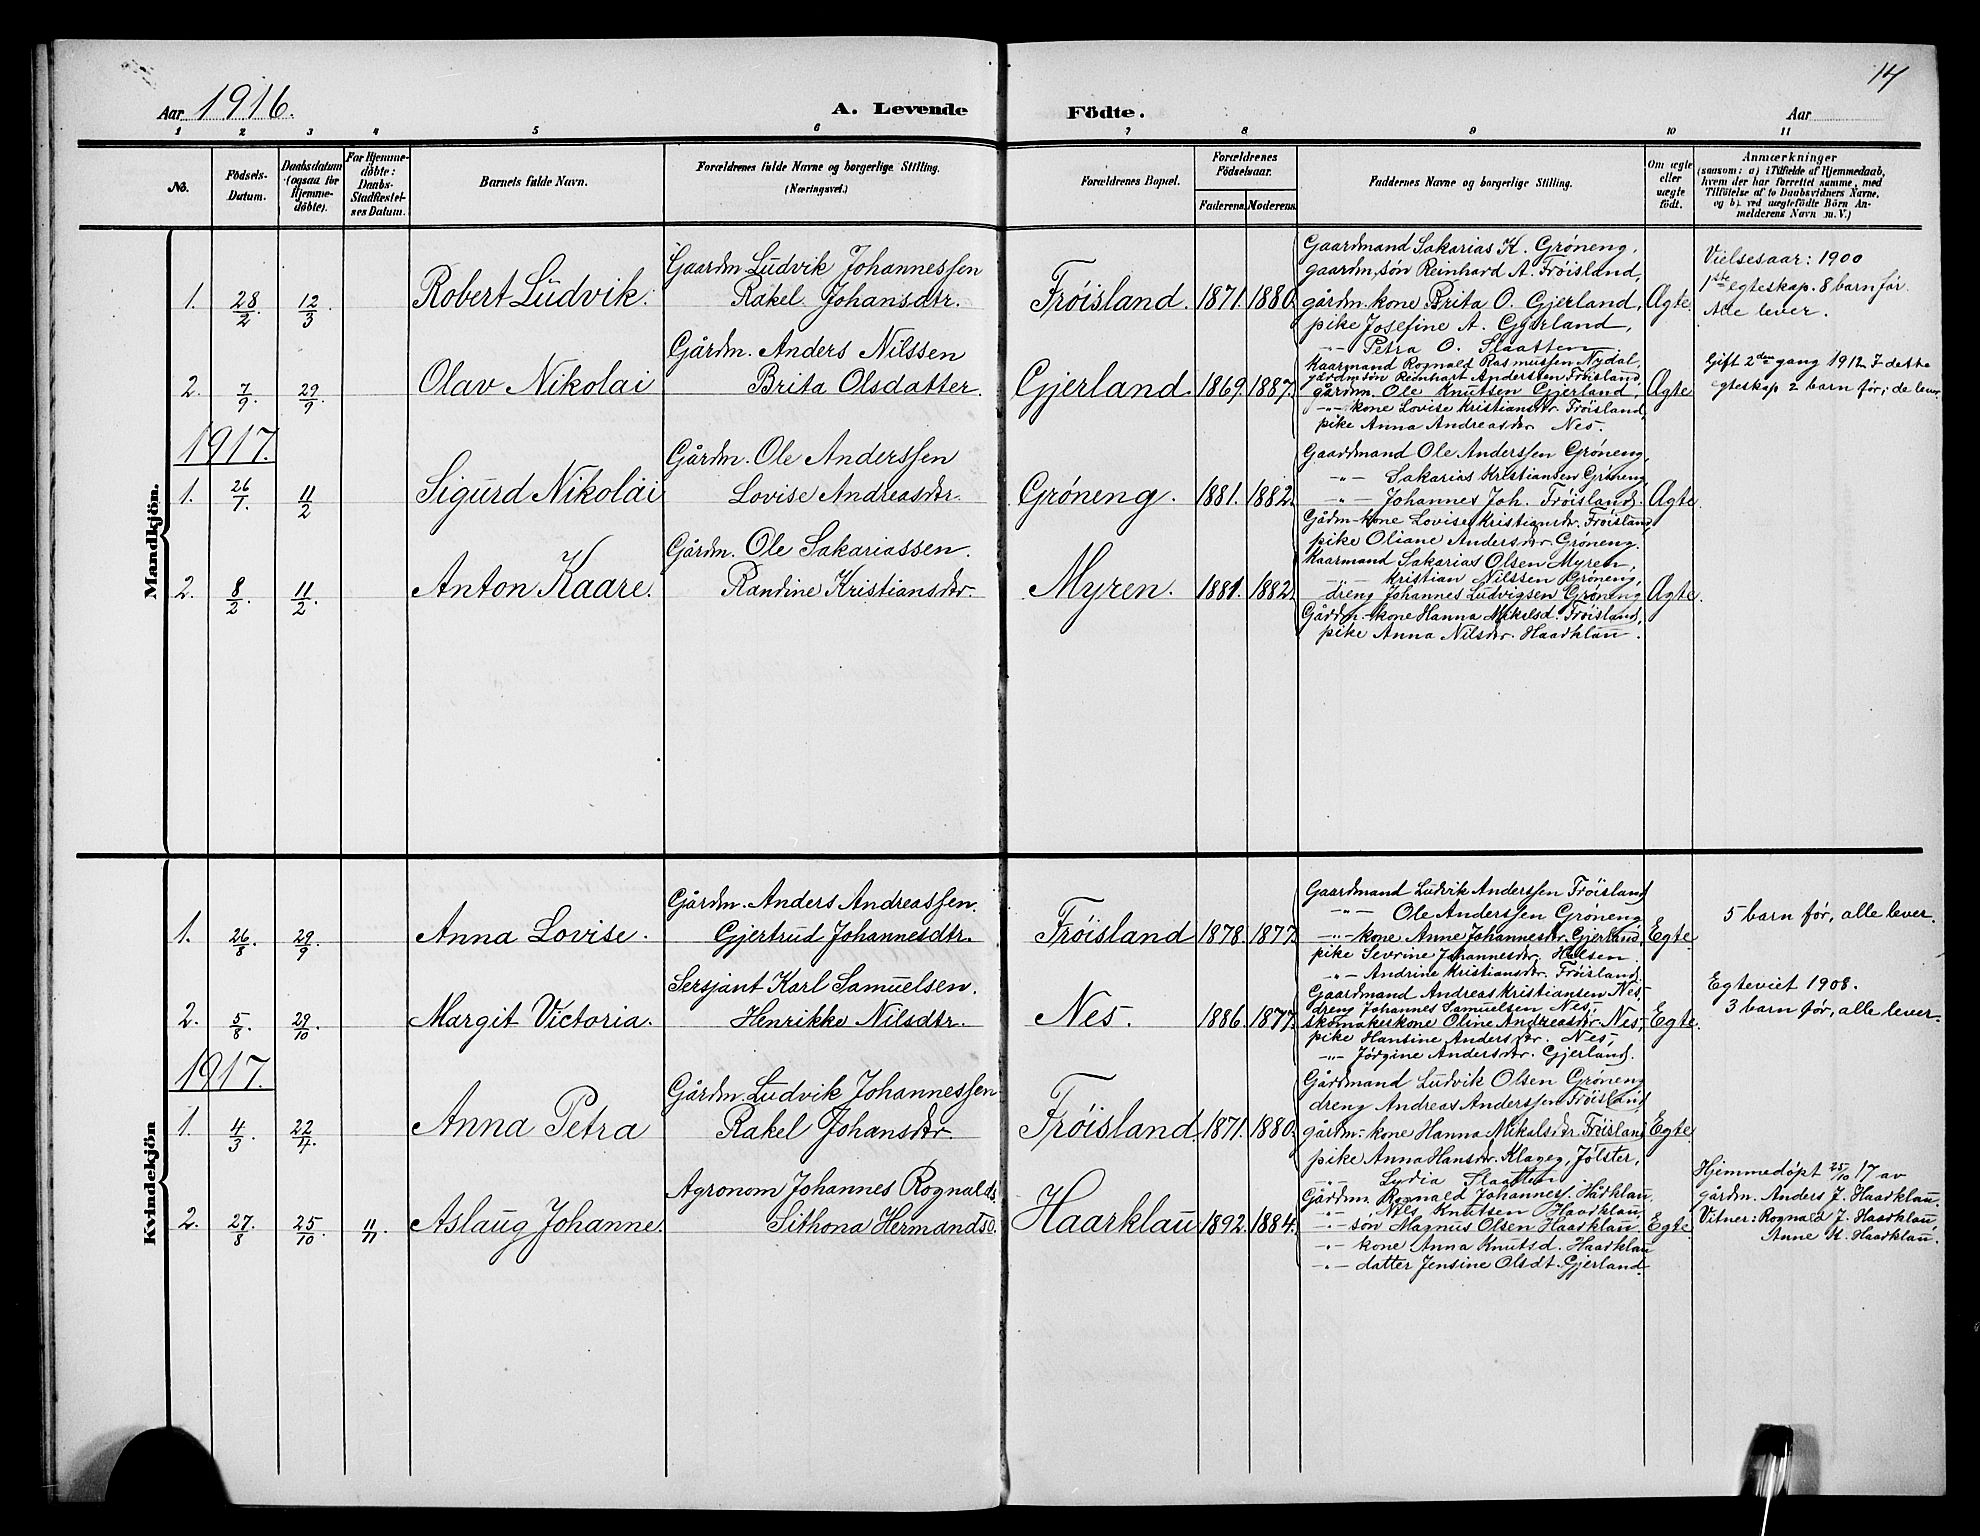 14
Aar 1916.
A. Levende Födte.
Aar
1 2 3 4 5 6 7 8 9 10 11
No.
Födsels-Datum.
Daabsdatum (ogsaa for Hjemme-döbte).
For Hjemme-döbte: Daabs-Stadfæstel-ses Datum.
Barnets fulde Navn.
Forældrenes fulde Navne og borgerlige Stilling.
(Næringsvei.)
Forældrenes Bopæl.
Forældrenes Födselsaar.
Faderens. Moderens.
Faddernes Navne og borgerlige Stilling.
Om ægte eller uægte födt.
Anmærkninger
(saasom: a) i Tilfælde af Hjemmedaab,
hvem der har forrettet samme, med
Tilföielse af to Daabsvidners Navne,
og b) ved uægtefödte Börn An-
melderens Navn m. V.)
Mandkjön.
1. 28/2 12/3 Robert Ludvik.
Gaardm. Ludvik Johannessen
Rakel Johansdtr.
Frøisland. 1871. 1880.
Gaardmand Sakarias K. Grøneng,
gaardm. søn Reinhard A. Frøisland,
gårdm. kone Brita O. Gjerland,
pike Josefine A. Gjerland,
-"- Petra O. Slaatten.
Ægte.
Vielsesaar: 1900
1ste egteskap. 8 barn før.
Alle lever.
2. 7/9 29/9 Olav Nikolai
Gårdm. Anders Nilssen
Brita Olsdatter.
Gjerland. 1869. 1887.
Kaarmand Rognald Rasmussen Nydal,
gårdm. søn Reinhart Anderssen Frøisland,
gårdm. Ole Knutsen Gjerland,
-"- kone Lovise Kristiansdtr. Frøisland,
pike Anna Andreasdtr. Nes.
Ægte
Gift 2den gang 1912. I dette
egteskap 2 barn før; de lever.
1917.
1. 26/1. 11/2 Sigurd Nikolai
Gårdm. Ole Anderssen
Lovise Andreasdtr.
Grøneng. 1881. 1882.
Gaardmand Ole Anderssen Grøneng,
-"- Sakarias Kristiansen Grøneng
-"- Johannes Joh. Frøisland.
Gårdm-kone Lovise Kristiansdtr. Frøisland,
pike Oliane Andersdtr. Grøneng.
Ægte.
2. 8/2 11/2. Anton Kaare.
Gårdm. Ole Sakariassen.
Randine Kristiansdtr.
Myren. 1881. 1882.
Kaarmand Sakarias Olsen Myren,
-"- Kristian Nilssen Grøneng,
dreng Johannes Ludvigsen Grøneng
Gårdm.-kone Hanna Mikelsd. Frøisland,
pike Anna Nilsdtr. Haarklau.
Ægte.
Kvindekjön
1. 26/8. 29/9 Anna Lovise.
Gårdm. Anders Andreassen.
Gjertrud Johannesdtr.
Frøisland 1878. 1877.
Gaardmand Ludvik Anderssen Frøisland
-"- Ole Anderssen Grøneng
-"- kone Anne Johannesdtr. Gjerland,
pike Sevrine Johannesdtr.
-"- Andrine Kristiansdtr. Frøisland.
Egte
5 barn før, alle lever.
2. 5/8. 29/10 Margit Victoria.
Sersjant Karl Samuelsen.
Henrikke Nilsdtr.
Nes. 1886. 1877.
Gaardmand Andreas Kristiansen Nes,
dreng Johannes Samuelsen Nes,
skomakerkone Oline Andreasdtr. Nes,
pike Hansine Andersdtr. Nes,
-"- Jørgine Andersdtr. Gjerland.
Egte.
Egteviet 1908.
3 barn før, alle lever.
1917.
1. 4/3. 22/4. Anna Petra
Gårdm. Ludvik Johannessen
Rakel Johansdtr.
Frøisland. 1871. 1880.
Gårdmand Ludvik Olsen Grøneng
dreng Andreas Anderssen Frøisland,
gårdm.- kone Hanna Mikalsdtr. Frøisland
pike Anna Hansdtr. Klageg, Jølster,
-"- Lydia Slaatten
Egte
2. 27/8 25/10 11/11 Aslaug Johanne.
Agronom Johannes Rognalds.
Sithona Hermandsd.
Haarklau 1892. 1884.
Gårdm. Rognald Johanness. Hårklau.
-"- Nils Knutsen Haarklau,
-"- søn Magnus Olsen Haarklau.
-"- kone Anna Knutsd. Haarklau
-"- datter Jensine Olsdt. Gjerland.
Egte.
Hjemmedøpt 25/10 17 av
gårdm. Anders J. Haarklau.
Vitner: Rognald J. Haarklau,
Anne K. Haarklau.